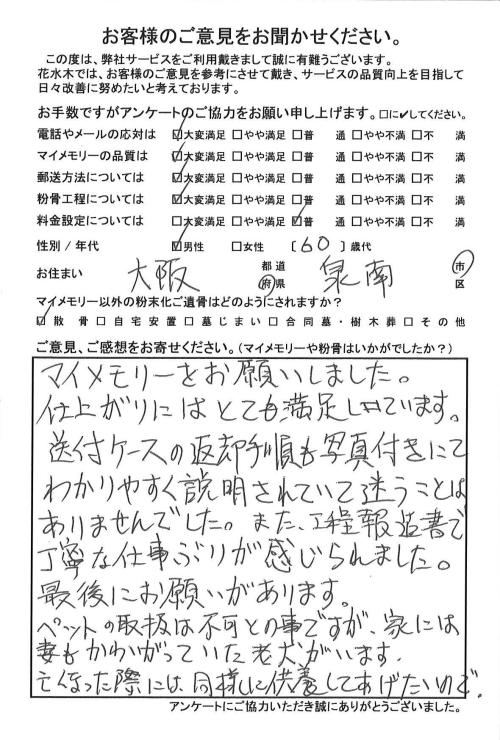 お客様のご意見をお聞かせください。
この度は、弊社サービスをご利用戴きまして誠に有難うございます。
花水木では、お客様のご意見を参考にさせて戴き、サービスの品質向上を目指して
日々改善に努めたいと考えております。
お手数ですがアンケートのご協力をお願い申し上げます。□に✓してください。
電話やメールの応対は ☑大変満足 □やや満足 □普 通 □やや不満 □不 満
マイメモリーの品質は ☑大変満足 □やや満足 □普 通 □やや不満 □不 満
郵送方法については ☑大変満足 □やや満足 □普 通 □やや不満 □不 満
粉骨工程については ☑大変満足 □やや満足 □普 通 □やや不満 □不 満
料金設定については □大変満足 □やや満足 ☑普 通 □やや不満 □不 満
性別 / 年代 ☑男性 □女性 [ 60 ] 歳代
お住まい 大阪 都道府県 泉南 市区
マイメモリー以外の粉末化ご遺骨はどのようにされますか？
☑散 骨 □自宅安置 □墓じまい □合同墓・樹木葬 □その他
ご意見、ご感想をお寄せください。（マイメモリーや粉骨はいかがでしたか？）
マイメモリーをお願いしました。
仕上がりにはとても満足しています。
送付ケースの返却手順も写真付きにて
わかりやすく説明されていて迷うことは
ありませんでした。また、工程報告書で
丁寧な仕事ぶりが感じられました。
最後にお願いがあります。
ペットの取扱は不可との事ですが、家には
妻もかわいがっていた老犬がいます。
亡くなった際には、同様に供養してあげたいので。
アンケートにご協力いただき誠にありがとうございました。